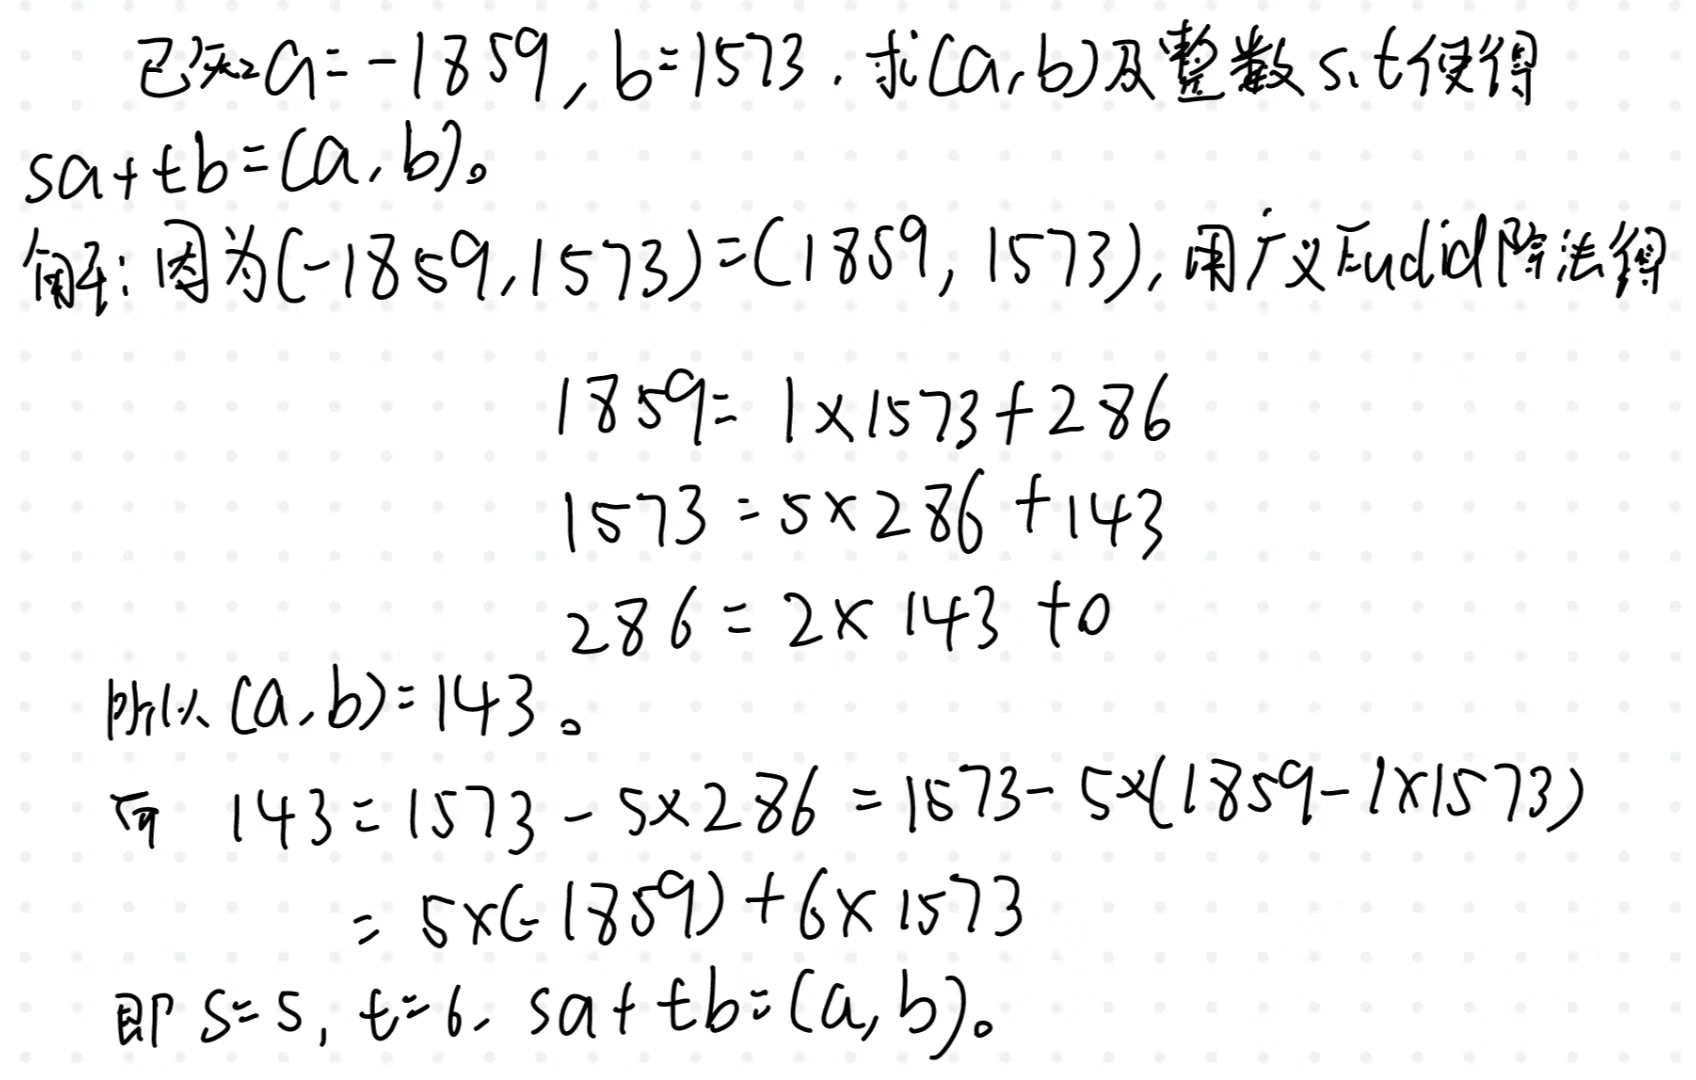 已知a=-1859,b=1573.求(a,b)及整数s、t使得
sa+tb=(a,b)。
解:因为(-1859,1573)=(1859,1573),用广义Euclid除法得
1859=1×1573+286
1573=5×286+143
286=2×143+0
所以(a,b)=143。
而 143=1573-5×286=1573-5×(1859-1×1573)
=5×(-1859)+6×1573
即s=5,t=6.sa+tb=(a,b)。